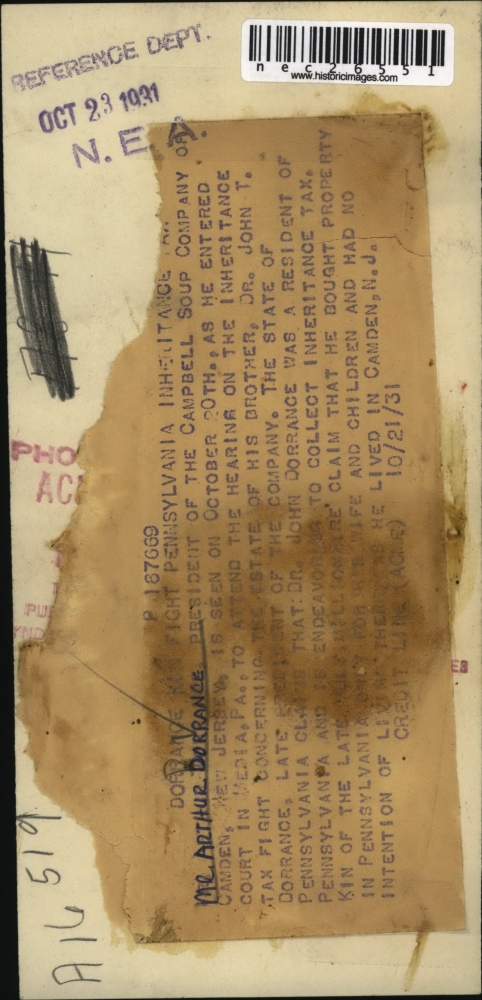 REFERENCE DEPT.
OCT 23 1931
N. E. A.
nec26551
www.historicimages.com
P 167669
DORRANCE FIGHT PENNSYLVANIA INHERITANCE
MR. ARTHUR DORRANCE PRESIDENT OF THE CAMPBELL SOUP COMPANY OF
CAMDEN, NEW JERSEY, IS SEEN ON OCTOBER 20TH., AS HE ENTERED
COURT IN MEDIA, PA., TO ATTEND THE HEARING ON THE INHERITANCE
TAX FIGHT CONCERNING THE ESTATE OF HIS BROTHER, DR. JOHN T.
DORRANCE, LATE PRESIDENT OF THE COMPANY. THE STATE OF
PENNSYLVANIA CLAIMS THAT DR. JOHN DORRANCE WAS A RESIDENT OF
PENNSYLVANIA AND IS ENDEAVORING TO COLLECT INHERITANCE TAX.
KIN OF THE LATE MILLIONAIRE CLAIM THAT HE BOUGHT PROPERTY
IN PENNSYLVANIA ONLY FOR HIS WIFE AND CHILDREN AND HAD NO
INTENTION OF LIVING THERE AS HE LIVED IN CAMDEN, N.J.
CREDIT LINE (ACME) 10/21/31
PHO
AC
PU
A16519